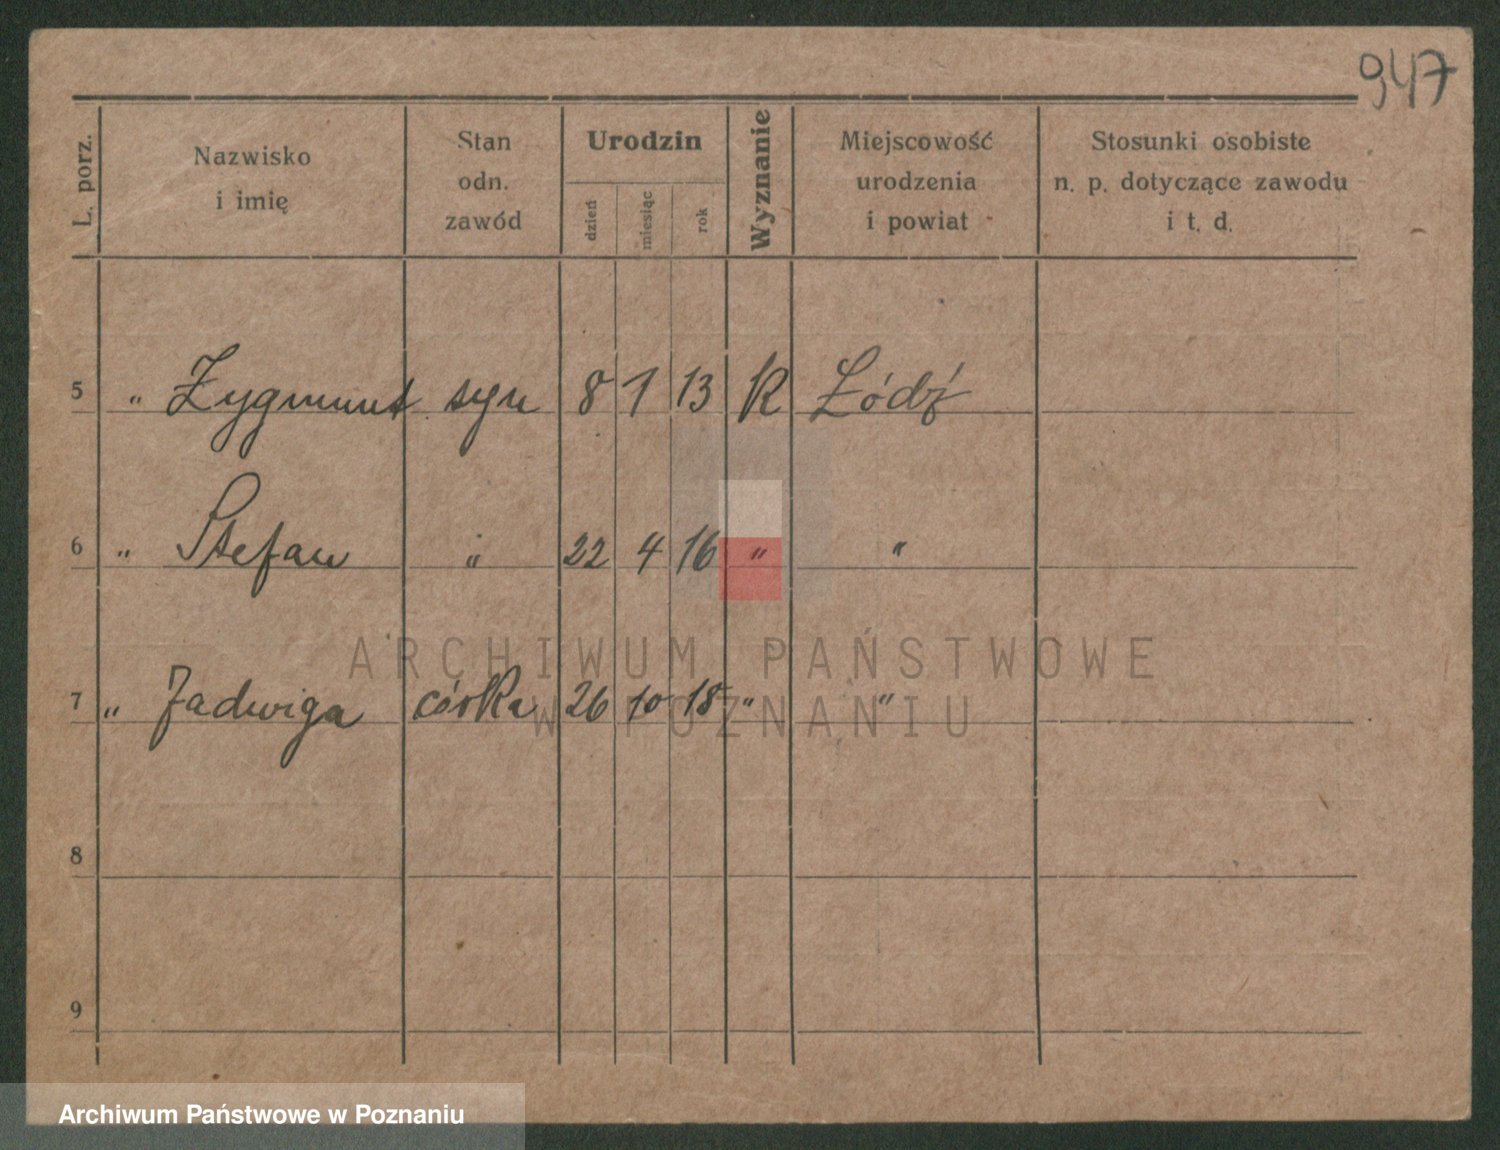 947
L. porz. Nazwisko i imię Stan odn. zawód Urodzin dzień miesiąc rok Wyznanie Miejscowość urodzenia i powiat Stosunki osobiste n. p. dotyczące zawodu i t. d.
5 " Zygmunt syn 8 1 13 K Łódź
6 " Stefan " 22 4 16 " "
ARCHIWUM PAŃSTWOWE
7 " Jadwiga córka 26 10 18 " "
W POZNANIU
8
9
Archiwum Państwowe w Poznaniu